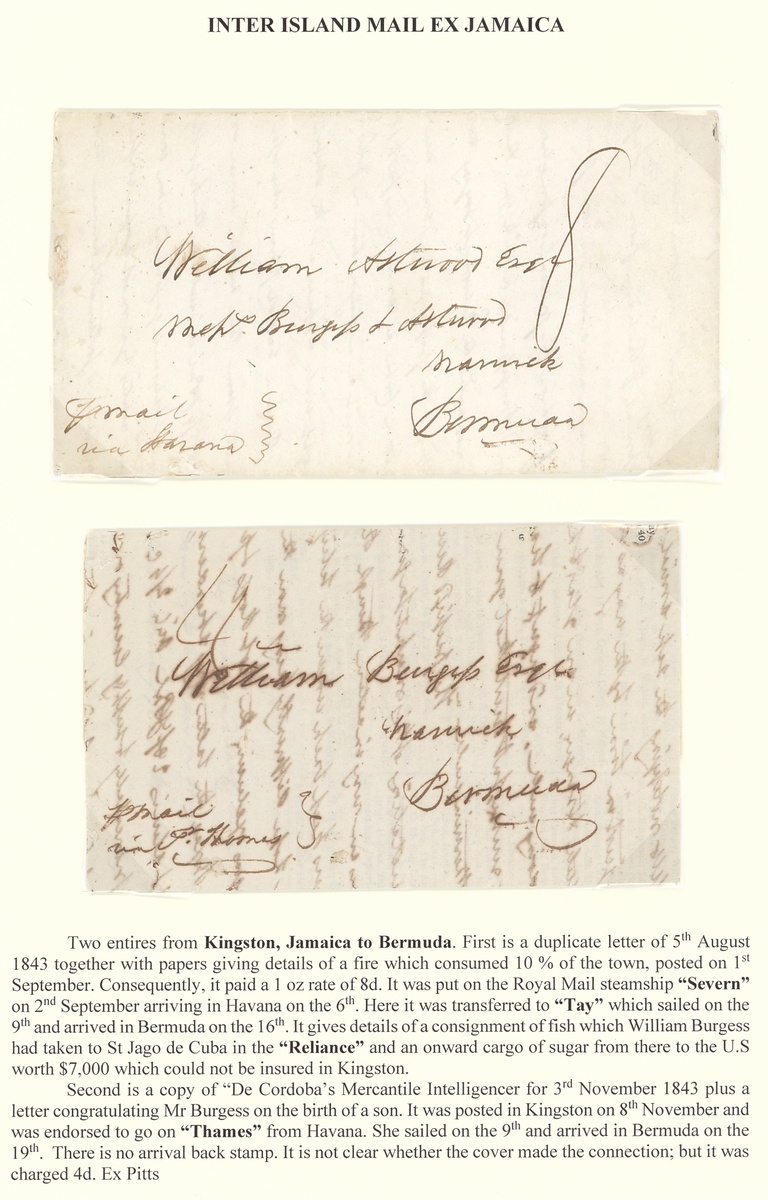 INTER ISLAND MAIL EX JAMAICA
8
William Astwood Esqr
Messrs. Burgess & Astwood
Warwick
Bermuda
p mail
via Havana
4
William Burgess Esqr.
Warwick
Bermuda
p mail
via St. Thomas
40
Two entires from Kingston, Jamaica to Bermuda. First is a duplicate letter of 5th August
1843 together with papers giving details of a fire which consumed 10 % of the town, posted on 1st
September. Consequently, it paid a 1 oz rate of 8d. It was put on the Royal Mail steamship “Severn”
on 2nd September arriving in Havana on the 6th. Here it was transferred to “Tay” which sailed on the
9th and arrived in Bermuda on the 16th. It gives details of a consignment of fish which William Burgess
had taken to St Jago de Cuba in the “Reliance” and an onward cargo of sugar from there to the U.S
worth $7,000 which could not be insured in Kingston.
Second is a copy of “De Cordoba’s Mercantile Intelligencer for 3rd November 1843 plus a
letter congratulating Mr Burgess on the birth of a son. It was posted in Kingston on 8th November and
was endorsed to go on “Thames” from Havana. She sailed on the 9th and arrived in Bermuda on the
19th. There is no arrival back stamp. It is not clear whether the cover made the connection; but it was
charged 4d. Ex Pitts